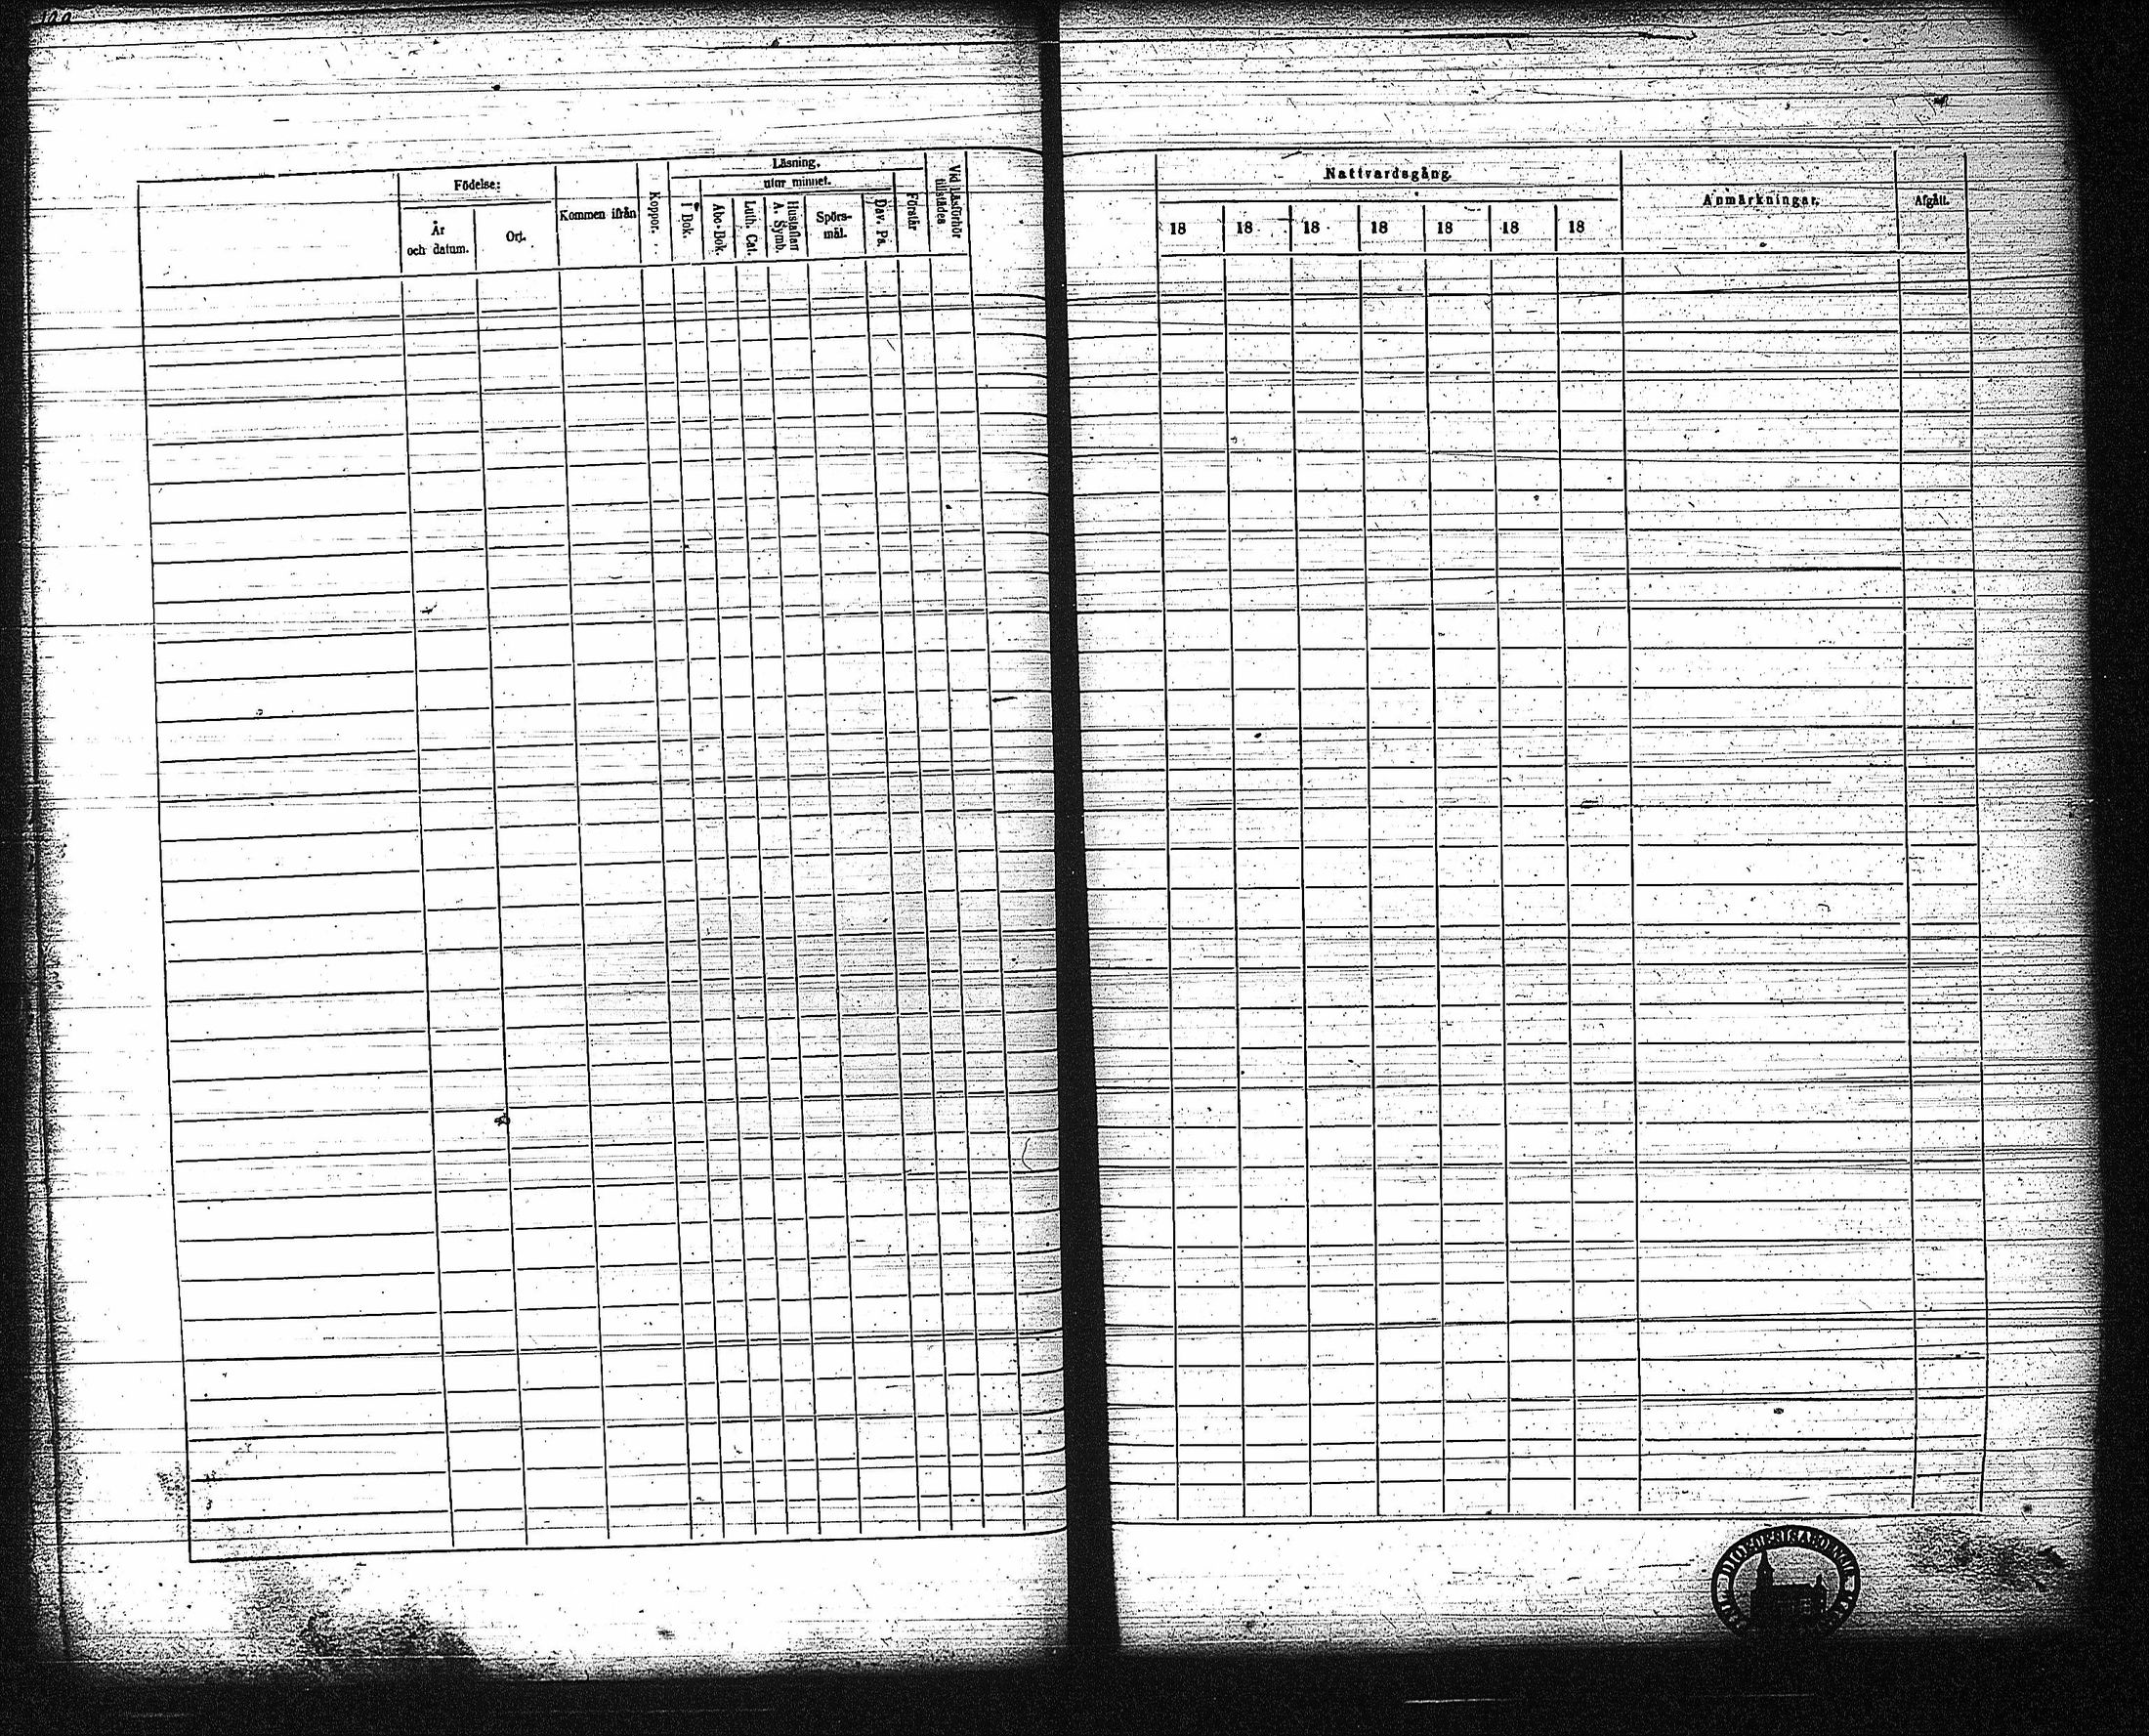 Födelse:
År
och datum.
Ort.
Kommen ifrån
Koppor.
Läsning.
utur minnet.
I Bok.
Abc-Bok.
Luth. Cat.
Hustaflan
A. Symb.
Spörs-
mål.
Dav. Ps.
Förstår
Vid Läsförhör
tillstädes
Nattvardsgång.
18 18 18 18 18 18 18
Anmärkningar.
Afgått.